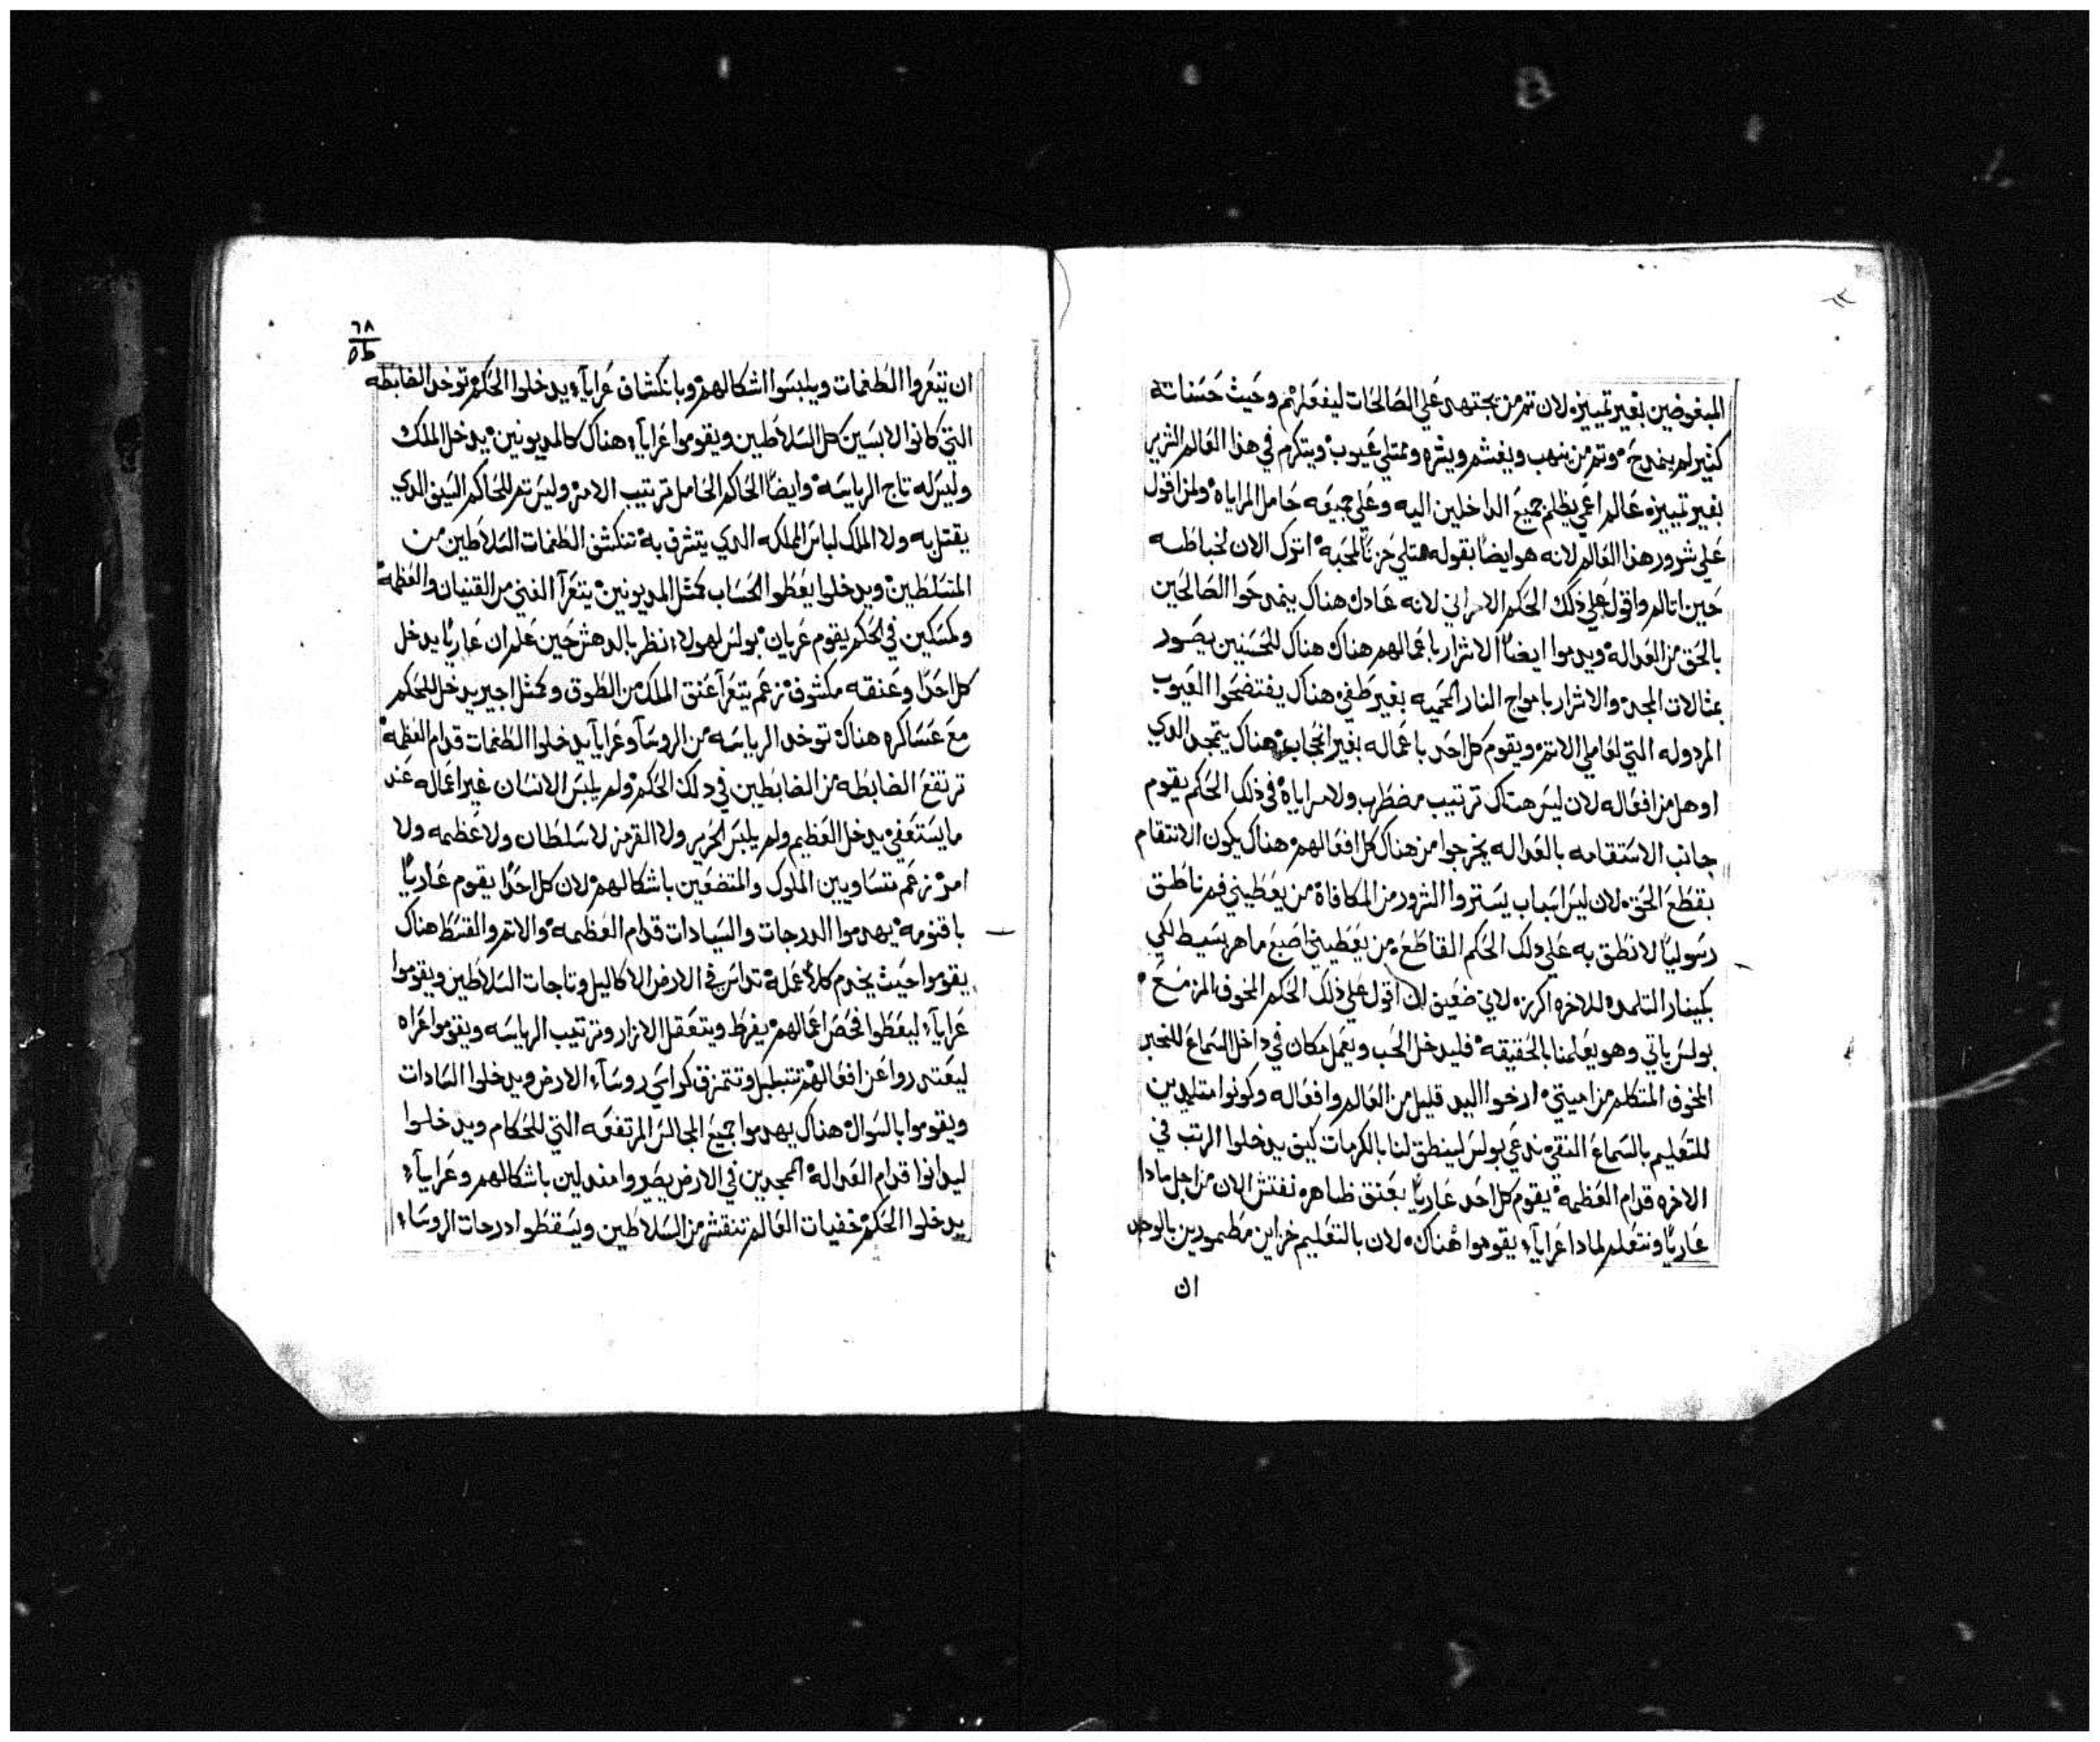 المبغوضين بغير تمييز، لان تم من يجتهد علي الصالحات ليفعلهم وحيث حسناته
كثير لم ينمدح، وتم من ينهب ويغشم ويشره وممتلي عيوب ويتكرم في هذا العالم الشرير
بغير تمييز، عالم اعمي يظلم جميع الداخلين اليه وعلي جميعه حامل المراياه ولمن اقول
علي شرور هذا العالم لانه هو ايضا بقوله ممتلي حزناً للمحبه اترك الان لخباطه
حين اتالم واقول علي ذلك الحكم الامراني لانه عادل هناك ينمدحوا الصالحين
بالحق من العداله ويدموا ايضاً الاشرار باعمالهم هناك هناك للمحسنين يصور
بمثالات المجد والاشرار بامواج النار المحميه بغير طفي هناك يفتضحوا العيوب
المردوله التي لعاملي الاتم ويقوم كل احد باعماله بغير انحجاب، هناك يتمجد الدي
اوهل من افعاله لان ليس هناك ترتيب مضطرب ولا مراياه في ذلك الحكم يقوم
جانب الاستقامه بالعداله يخرجوا من هناك كل افعالهم هناك يكون الانتقام
بقطع الحق، لان ليس اسباب يستروا الشرور من المكافاه من يعطيني فم ناطق
رسولياً لانطق به علي دلك الحكم القاطع، من يعطيني اصبع ماهر بسيط لكي
بكينار التلمده للاخره اكرز، لاني ضعيف ان اقول علي ذلك الحكم المخوف المزمع
بولس ياتي وهو يعلمنا بالحقيقه فليدخل الحب ويعمل مكان في داخل السماع للخبر
المخوف المتكلم من اميتي، ارخوا اليد قليل من العالم وافعاله وكونوا متلمدين
للتعليم بالسماع النقي، ندعي بولس لينطق لنا بالكرمات كيف يدخلوا الرتب في
الاخره قدام العظمه يقوم كل احد عارياً بعنق ظاهره نفتش الان من اجل مادا
عارياً ونتعلم لمادا عرايآء يقوموا هناك، لان بالتعليم خزاين مطمورين بالوحد
ان
٦٨
٥ط
ان تيتعروا الطغمات ويلبسوا اشكالهم وبانكشاف عرايآء يدخلوا الحكم توخد الضابطه
التي كانوا لابسين كل السلاطين ويقوموا عرايآء هناك كالمديونين يدخل الملك
وليس له تاج الرياسه وايضاً الحاكم الحامل ترتيب الامر وليس تم للحاكم السيف الدي
يقتل به ولا الملك لباس المملكه الدي يتشرف به تنكشف الطغمات السلاطين من
المتسلطين ويدخلوا يعطوا الحساب كمثل المديونين يتعرآ الغني من القنيان والعظمه
وكمسكين في الحكم يقوم عريان بولس لهولاء نظر بالدهش حين علم ان عارياً يدخل
كل احداً وعنقه مكشوف نزعم يتعرآ عنق الملك من الطوق وكمثل اجير يدخل للحكم
مع عساكره هناك توخد الرياسه من الروسآ وعراياً يدخلوا الطغمات قدام العظمه
ترتفع الضابطه من الضابطين في دلك الحكم ولم يلبس الانسان غير اعماله عند
ما يستعفي يدخل العظيم ولم يلبس الحرير ولا القرمز لا سلطان ولا عظمه ولا
امر نزعم متساويين الملوك والمتضعين باشكالهم لان كل احداً يقوم عارياً
باقنومه يهدموا الدرجات والسيادات قدام العظمه والاتم والقسط هناك
يقوموا حيث يخدم كلاً عمله تداس في الارض الاكاليل وتاجات السلاطين ويقوموا
عرايآء ليعطوا فحص اعمالهم يفرط ويتعقل الازار وترتيب الرياسه ويقوموا عراه
ليعتدروا عن افعالهم تتبطل وتتمزق كراسي روسآء الارض ويدخلوا السادات
ويقوموا بالسوال هناك يهدموا جميع المجالس المرتفعه التي للحكام ويدخلوا
ليدانوا قدام العداله الممجدين في الارض يصيروا مندلين باشكالهم وعرايآء
يدخلوا الحكم خفيات العالم تنقشر من السلاطين ويسقطوا درجات الروساء